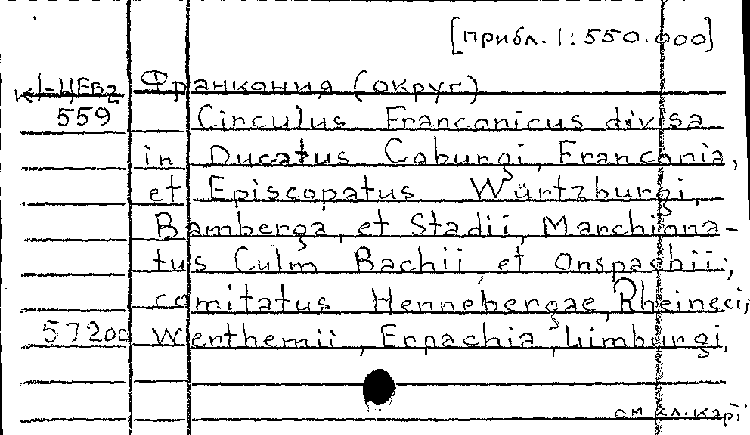 [прибл. 1:550.000]
К 1-ЦЕв2 Франкония (округ)
559 Circulus Franconicus divisa
in Ducatus Coburgi, Franconia,
et Episcopatus Würtzburgi,
Bamberga, et Stadii, Marchiona-
tus Culm Bachii, et Onspachii;
comitatus Hennebergae, Rheineci,
57200 Werthemii, Erpachia, Limburgi,
см. сл. карт